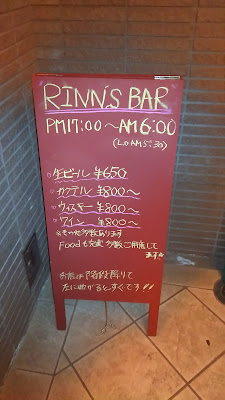 RINN'S BAR
PM17:00〜AM6:00
(L.O AM5:30)
○生ビール ¥650
○カクテル ¥800〜
○ウィスキー ¥800〜
○ワイン ¥800〜
その他多数あります
Foodも充実 多数ご用意して
ます
お店は階段降りて
左に曲がるとすぐです!!